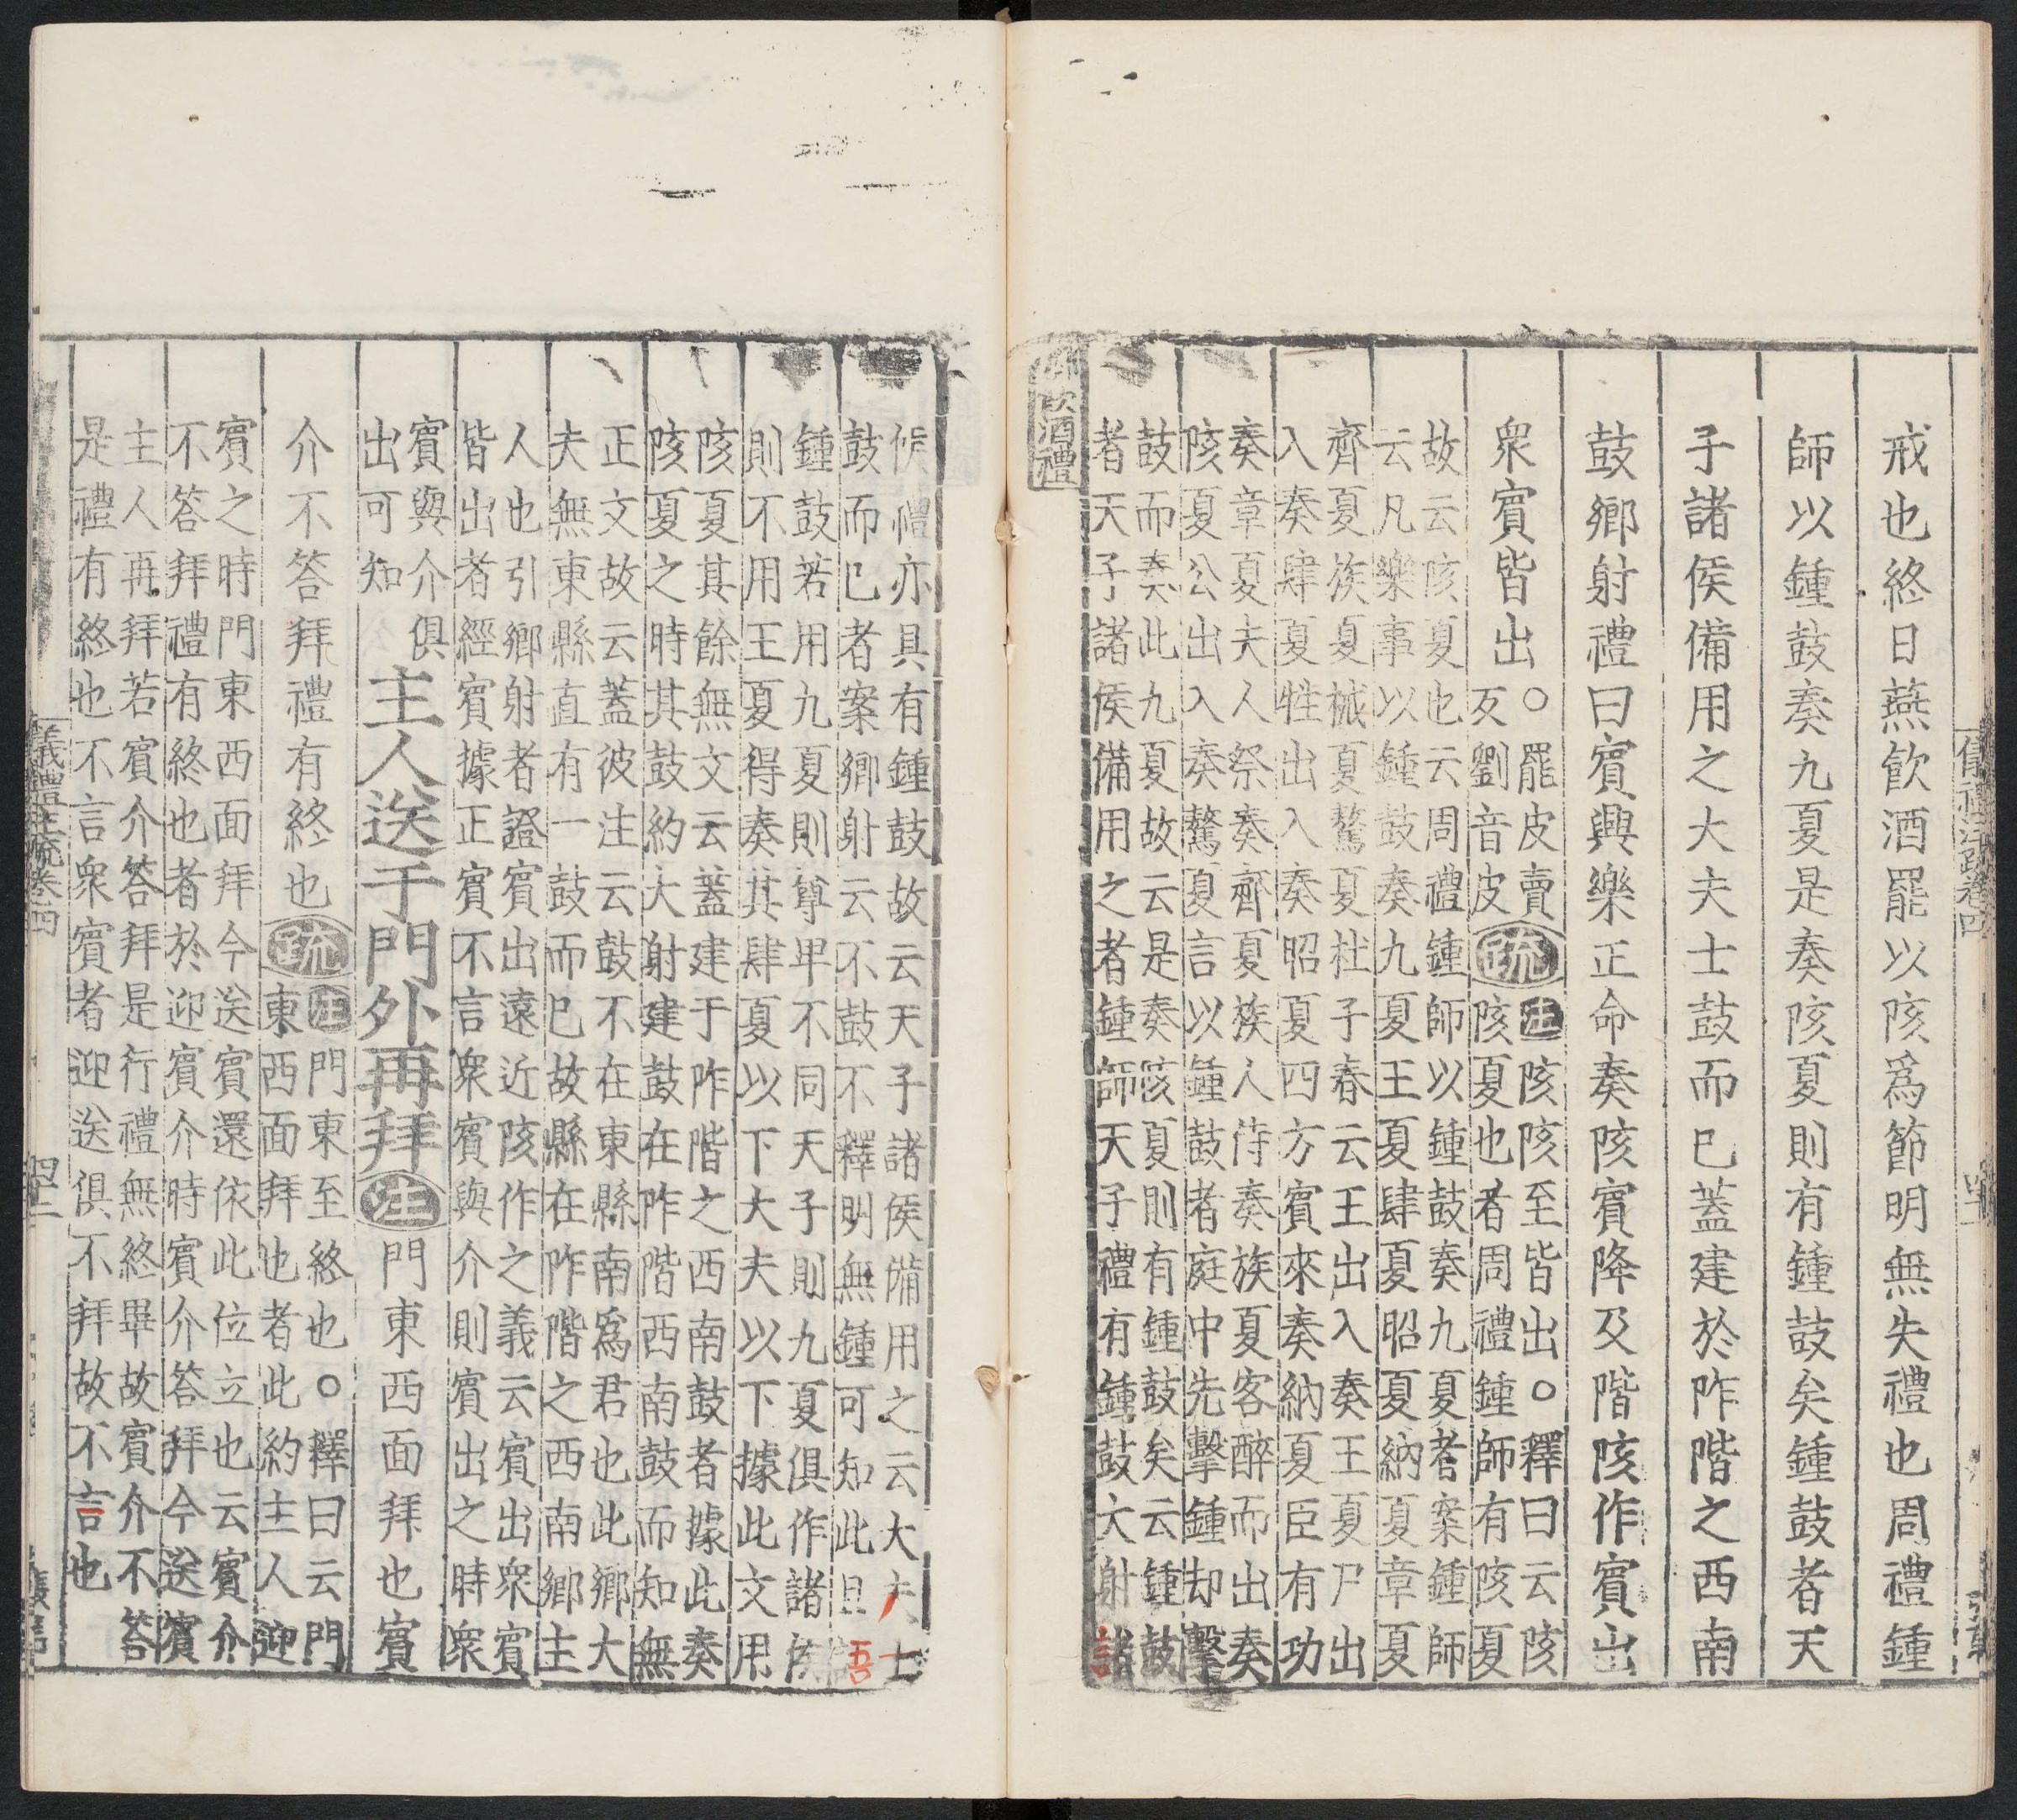 戒也終日燕飲酒罷以陔爲節明無失禮也周禮鍾
師以鍾鼓奏九夏是奏陔夏則有鍾鼓矣鍾鼓者天
子諸侯備用之大夫士鼓而已蓋建於阼階之西南
鼓鄉射禮曰賓興樂正命奏陔賓降及階陔作賓出
衆賓皆出○
罷皮賣
反劉音皮
疏
注陔陔至皆出○釋曰云陔
陔夏也者周禮鍾師有陔夏
故云陔夏也云周禮鍾師以鍾鼓奏九夏者案鍾師
云凡樂事以鍾鼓奏九夏王夏肆夏昭夏納夏章夏
齊夏族夏祴夏驁夏杜子春云王出入奏王夏尸出
入奏肆夏牲出入奏昭夏四方賓來奏納夏臣有功
奏章夏夫人祭奏齊夏族人侍奏族夏客醉而出奏
陔夏公出入奏驁夏言以鍾鼓者庭中先擊鍾却擊
鼓而奏此九夏故云是奏陔夏則有鍾鼓矣云鍾鼓
者天子諸侯備用之者鍾師天子禮有鍾鼓大射諸
飲酒禮
侯禮亦具有鍾鼓故云天子諸侯備用之云大夫士
鼓而已者案鄉射云不鼓不釋明無鍾可知此
鍾鼓若用九夏則尊卑不同天子則九夏俱作諸侯
則不用王夏得奏其肆夏以下大夫以下據此文用
陔夏其餘無文云蓋建于阼階之西南鼓者據此奏
陔夏之時其鼓約大射建鼓在阼階西南鼓而知無
正文故云蓋彼注云鼓不在東縣南爲君也此鄉大
夫無東縣直有一鼓而已故縣在阼階之西南鄉主
人也引鄉射者證賓出遠近陔作之義云賓出衆賓
皆出者經賓據正賓不言衆賓與介則賓出之時衆
賓與介俱
出可知
主人送于門外再拜
注
門東西面拜也賓
介不答拜禮有終也
疏
注門東至終也○釋曰云門
東西面拜也者此約主人迎
賓之時門東西面拜今送賓還依此位立也云賓介
不答拜禮有終也者於迎賓介時賓介答拜今送賓
主人再拜若賓介答拜是行禮無終畢故賓介不答
是禮有終也不言衆賓者迎送俱不拜故不言也